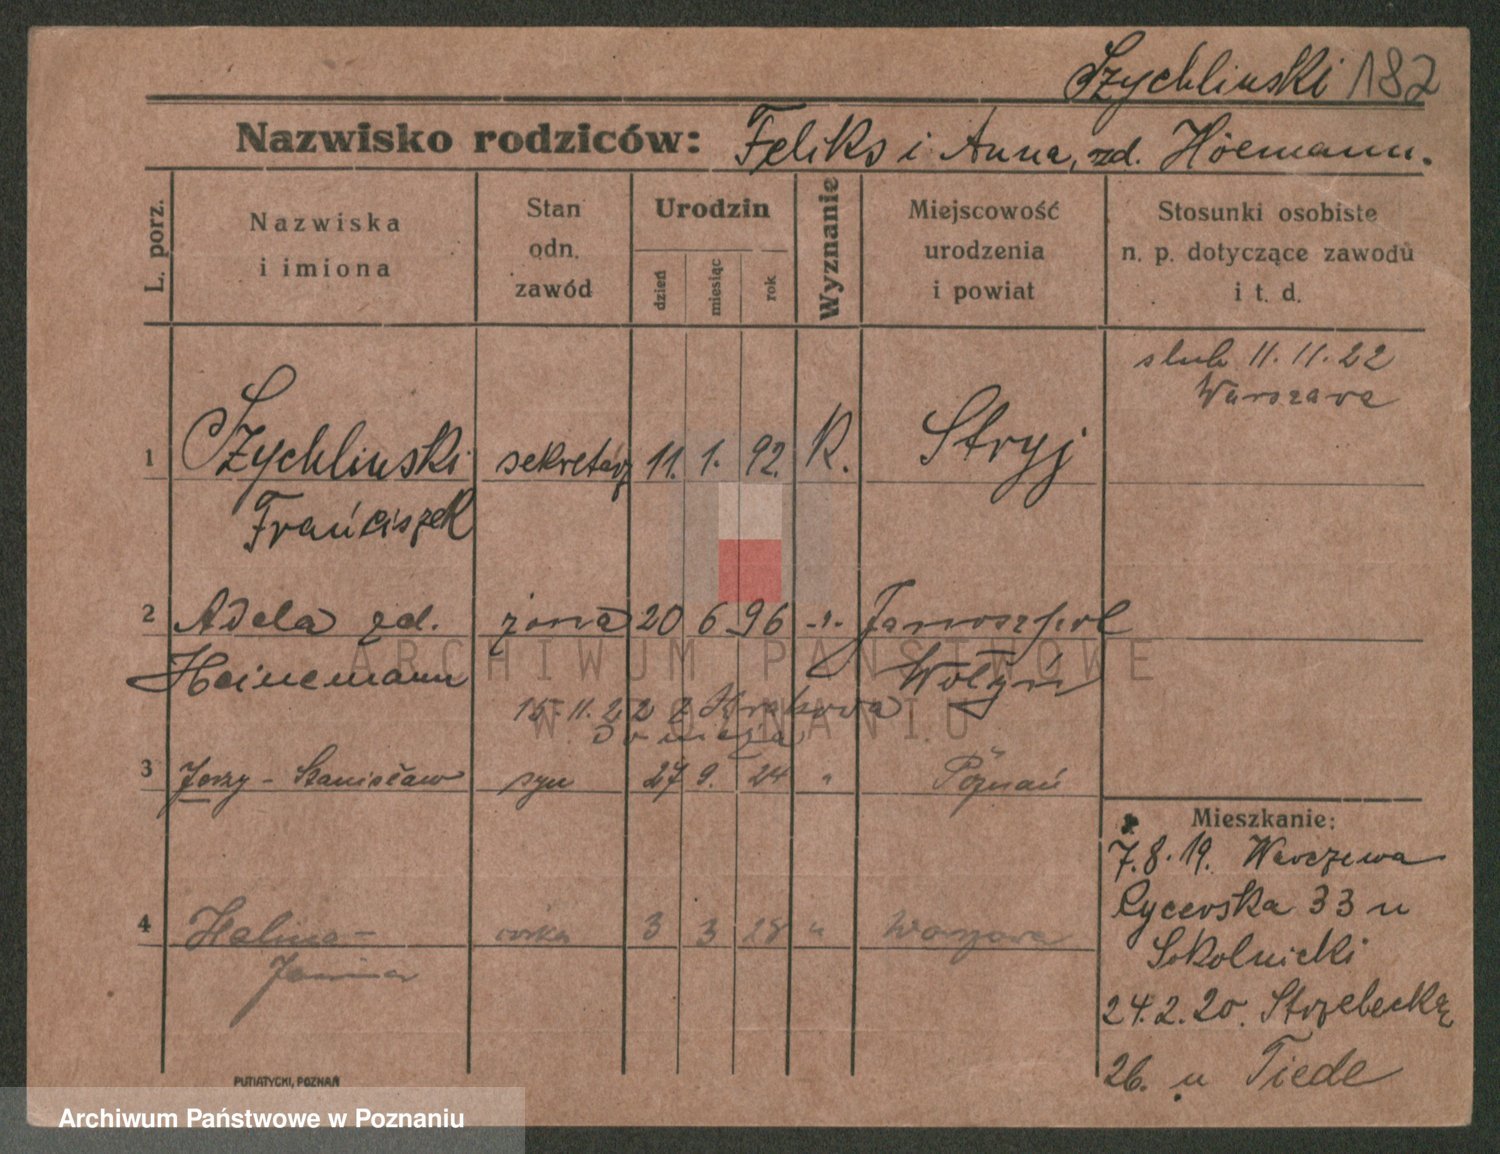 Szychlinski 182
Nazwisko rodziców: Feliks i Anna, zd. Höemann.
L. porz.
Nazwiska i imiona
Stan odn. zawód
Urodzin
dzień miesiąc rok
Wyznanie
Miejscowość urodzenia i powiat
Stosunki osobiste n. p. dotyczące zawodu i t. d.
slub 11.11.22
Warszawa
1 Szychlinski sekretarz 11. 1. 92. R. Stryj
Franciszek
2 Adela zd. żona 20 6 96 -"- Januszpol
Heinemann Wołyń
15.11.22 z Krakowa
ARCHIWUM PAŃSTWOWE
W POZNANIU
3 Jerzy - Stanisław syn 27 9. 24 " Poznań
Mieszkanie:
7.8.19. Warszewa
Rycerska 33 u
Sokolnicki
24.2.20. Strzelecka
26. u Tiede
4 Halina - corka 3 3 28 " Warszawa
Janina
PUTIATYCKI, POZNAŃ
Archiwum Państwowe w Poznaniu